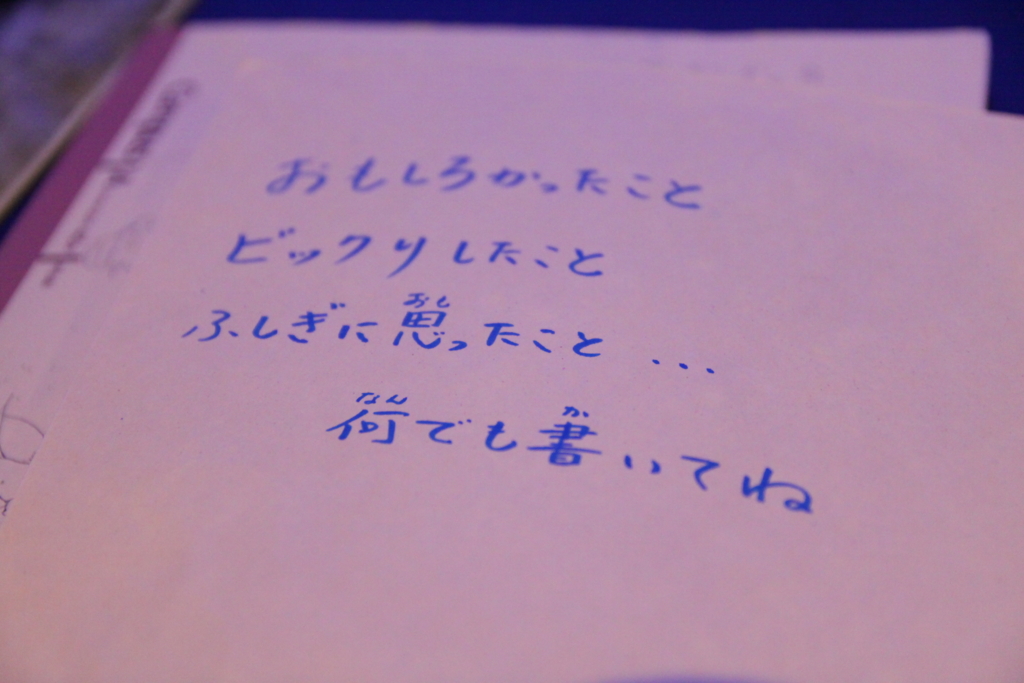 おもしろかったこと
ビックリしたこと
ふしぎに思ったこと...
何でも書いてね